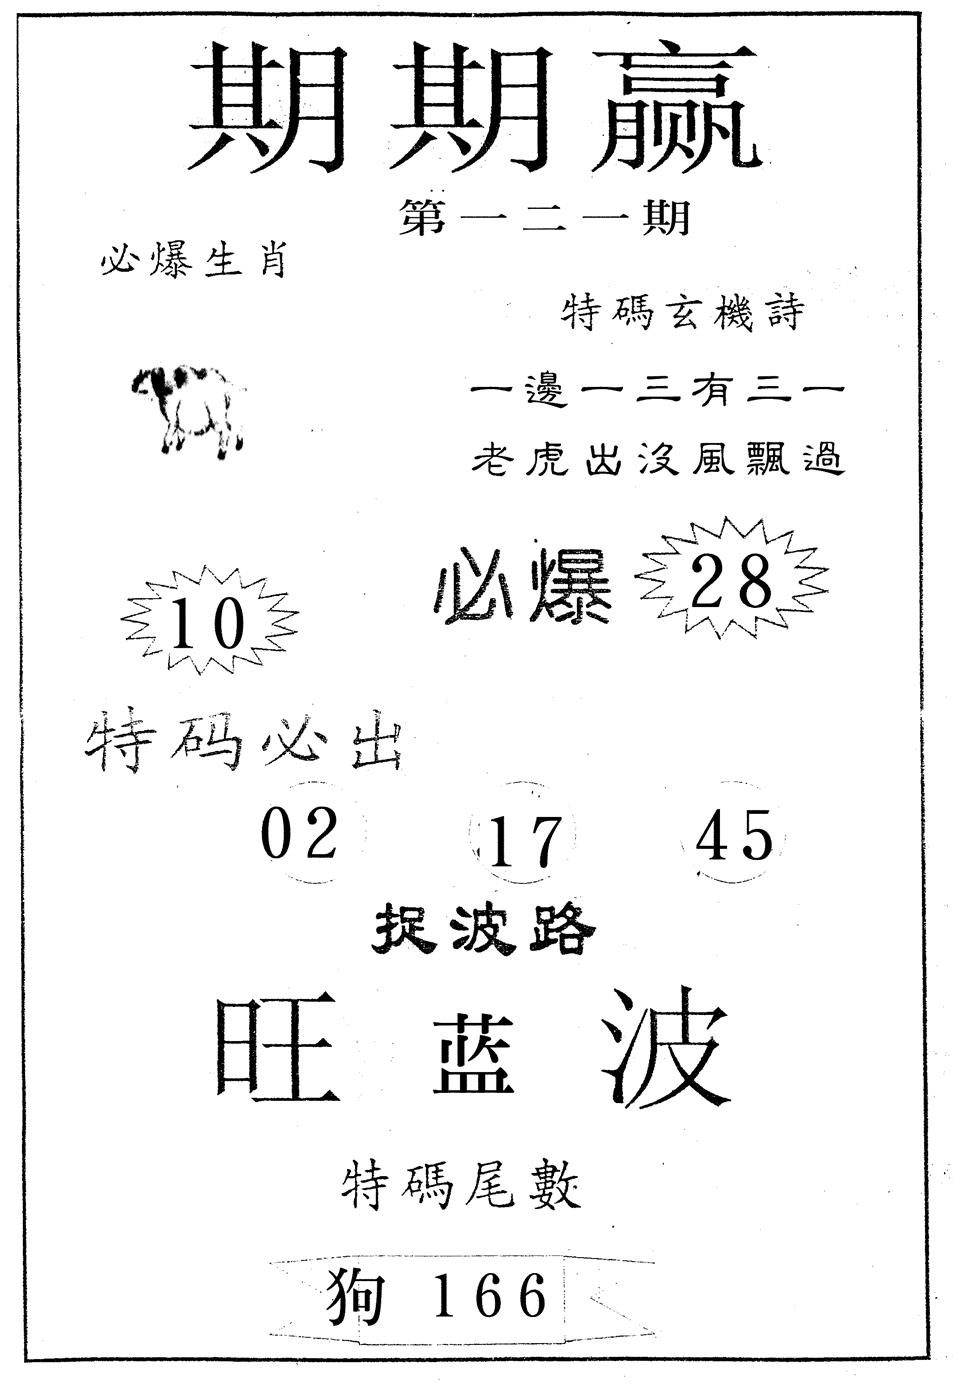 期期赢
第一二一期
必爆生肖
特碼玄機詩
一邊一三有三一
老虎出沒風飄過
必爆 28
10
特码必出
02 17 45
捉波路
旺蓝波
特碼尾數
狗 166